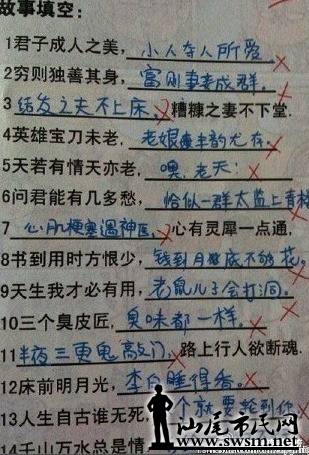 故事填空：
1君子成人之美，小人夺人所爱
2穷则独善其身，富则妻妾成群。
3结发之夫不上床，糟糠之妻不下堂.
4英雄宝刀未老，老娘丰韵尤存。
5天若有情天亦老，噢，老天！
6问君能有几多愁，恰似一群太监上青楼
7心肌梗塞遇神医，心有灵犀一点通，
8书到用时方恨少，钱到月底不够花。
9天生我才必有用，老鼠儿子会打洞。
10三个臭皮匠，臭味都一样。
11半夜三更鬼敲门，路上行人欲断魂.
12床前明月光，李白睡得香。
13人生自古谁无死，个就要轮到你
14千山万水总是情，
汕尾市民网
www.swsm.net